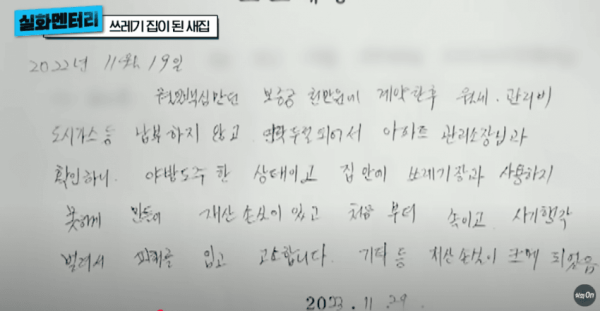 실화멘터리
쓰레기 집이 된 새집
2022년 11월 19일
보증금 천만원에 계약한후 월세. 관리비
도시가스 등 납부하지 않고 연락두절되어서 아파트 관리소장님과
확인하니. 야반도주 한 상태이고 집안에 쓰레기장과 사용하지
못하게 만든어 재산 손실이 있고 처음 부터 속이고 사기행각
벌려서 피해를 입고 고소합니다. 기타 등 재산손실이 크게 되었음
2023. 11. 29.
On